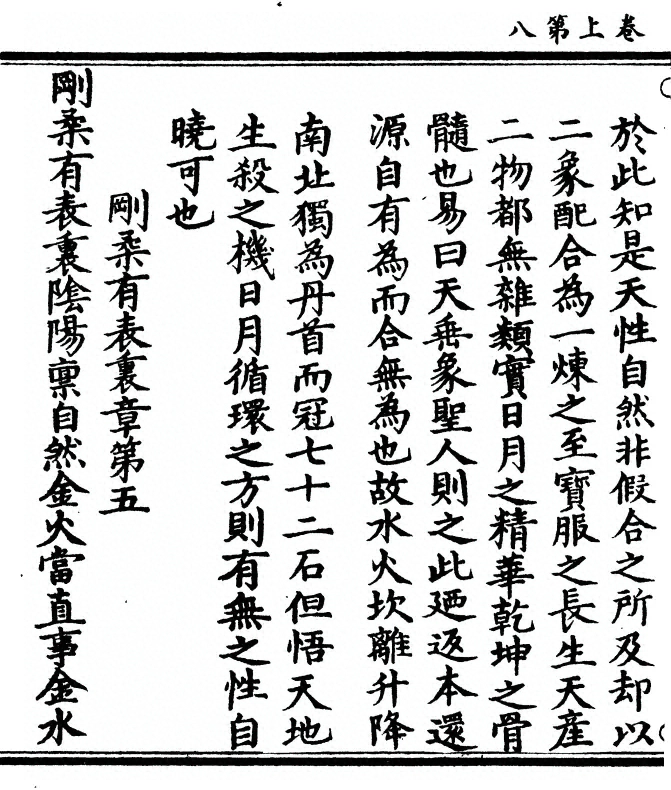 卷上第八
於此知是天性自然非假合之所及却以
二象配合為一煉之至寶服之長生天產
二物都無雜類實日月之精華乾坤之骨
髓也易曰天垂象聖人則之此廼返本還
源自有為而合無為也故水火坎離升降
南北獨為丹首而冠七十二石但悟天地
生殺之機日月循環之方則有無之性自
曉可也
剛柔有表裏章第五
剛柔有表裏陰陽禀自然金火當直事金水